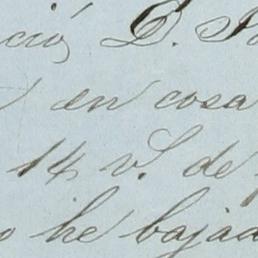 ció, D.
en cosa
14 v.ˢ de
he bajad